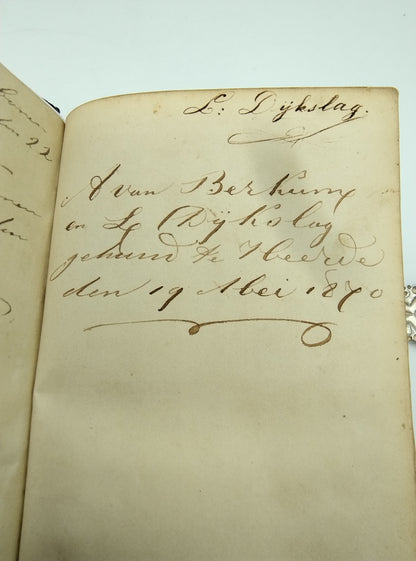 22
L: Dijkslag.
A van Berkum
en L Dijkslag
gehuwd te Heerde
den 19 Mei 1870